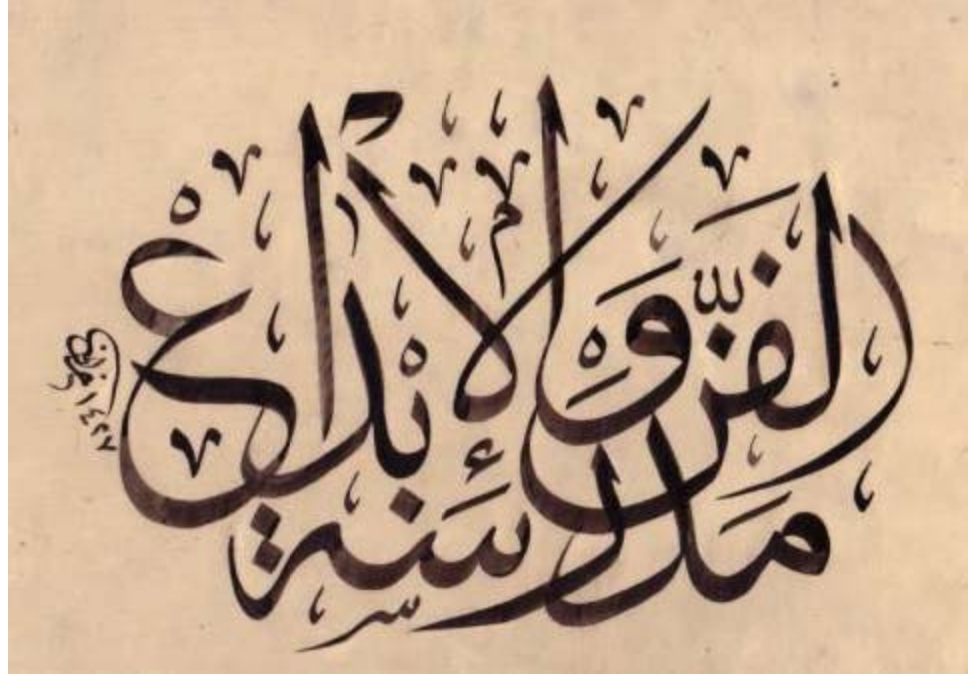 مَدْرَسَة
الفَنِّ وَالإِبْدَاعْ
١٤٢٧